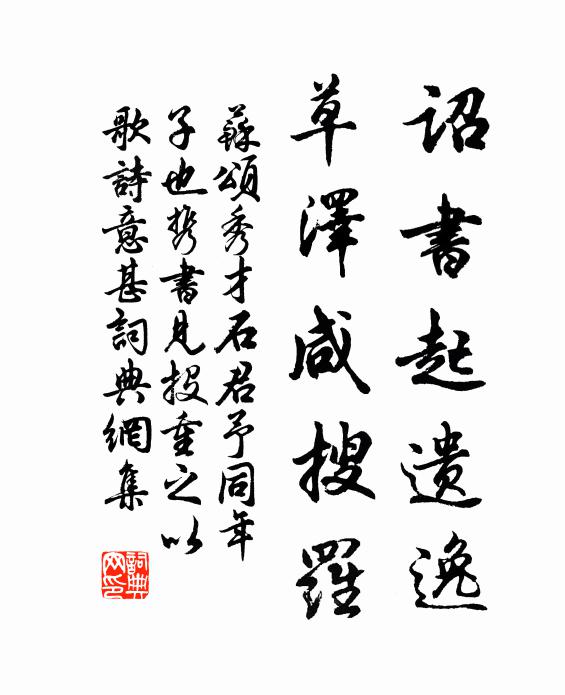 詔書起遺逸
草澤咸搜羅
蘇頌秀才石君予同年
子也携書見投重之以
歌詩意甚詞典網集
詞典網印